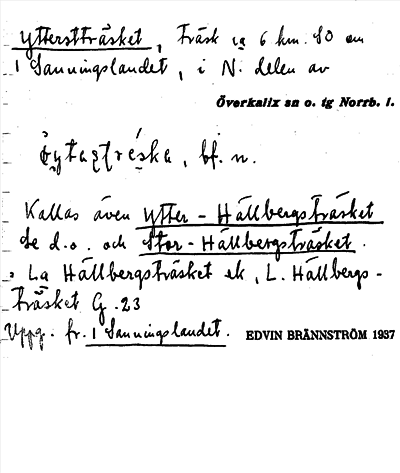 Ytterstträsket, Träsk ca 6 km. SO om
1 Sanningslandet, i N. delen av
Överkalix sn o. tg Norrb. l.
bf. n.
Kallas även Ytter-Hällbergsträsket
Se d.o. och Stor-Hällbergsträsket.
La Hällbergsträsket ek, L. Hällbergs-
träsket G. 23
Uppg. fr. 1 Sanningslandet. EDVIN BRÄNNSTRÖM 1937